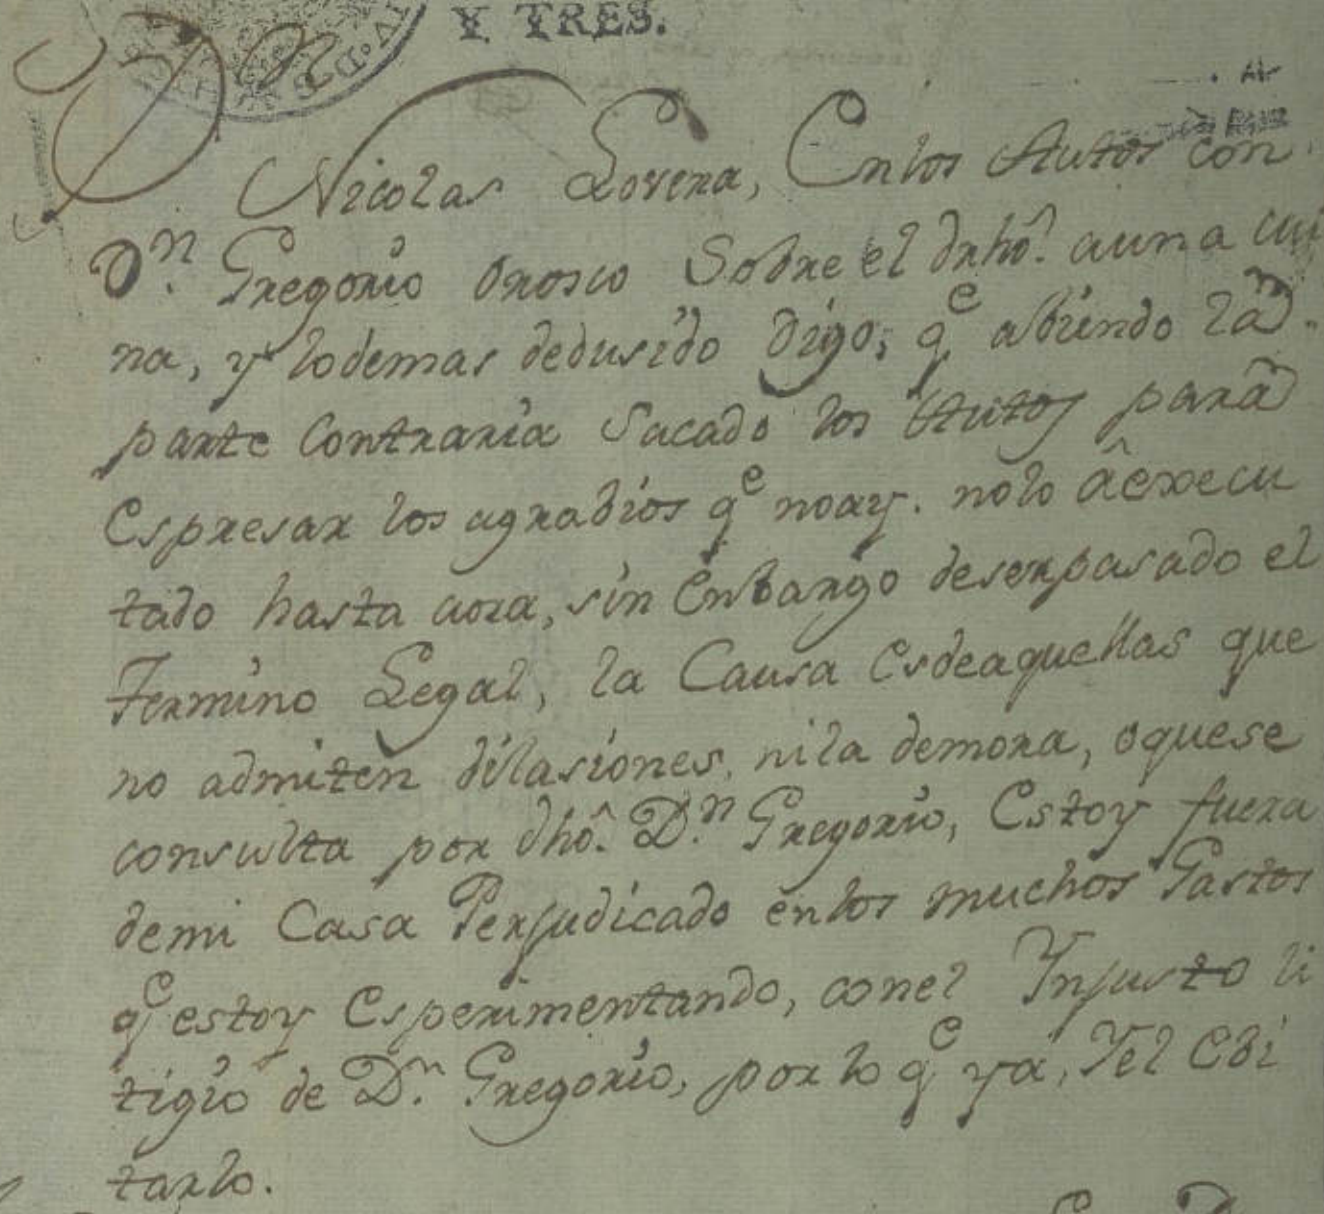 Y TRES.
Dn Nicolas Lovera, Enlos Autos con
Dn. Gregorio Orosco Sobre el drhô. auna cui
na, y lodemas dedusido Digo; qe abiendo la
parte Contraria Sacado los Autos para
Espresar los agrabios qe noay. nolo âexecu
tado hasta aora, sin Enbargo deserpasado el
Termino Legal, la Causa Esdeaquellas que
no admiten dilasiones, nila demora, oquese
consulta por dhô. Dn. Gregorio, Estoy fuera
demi Casa Perjudicado enlos muchos Gastos
qe estoy Esperimentando, conel Ynjusto li
tigio de Dn. Gregorio, por lo qe ya, Yel Ebi
tarlo.